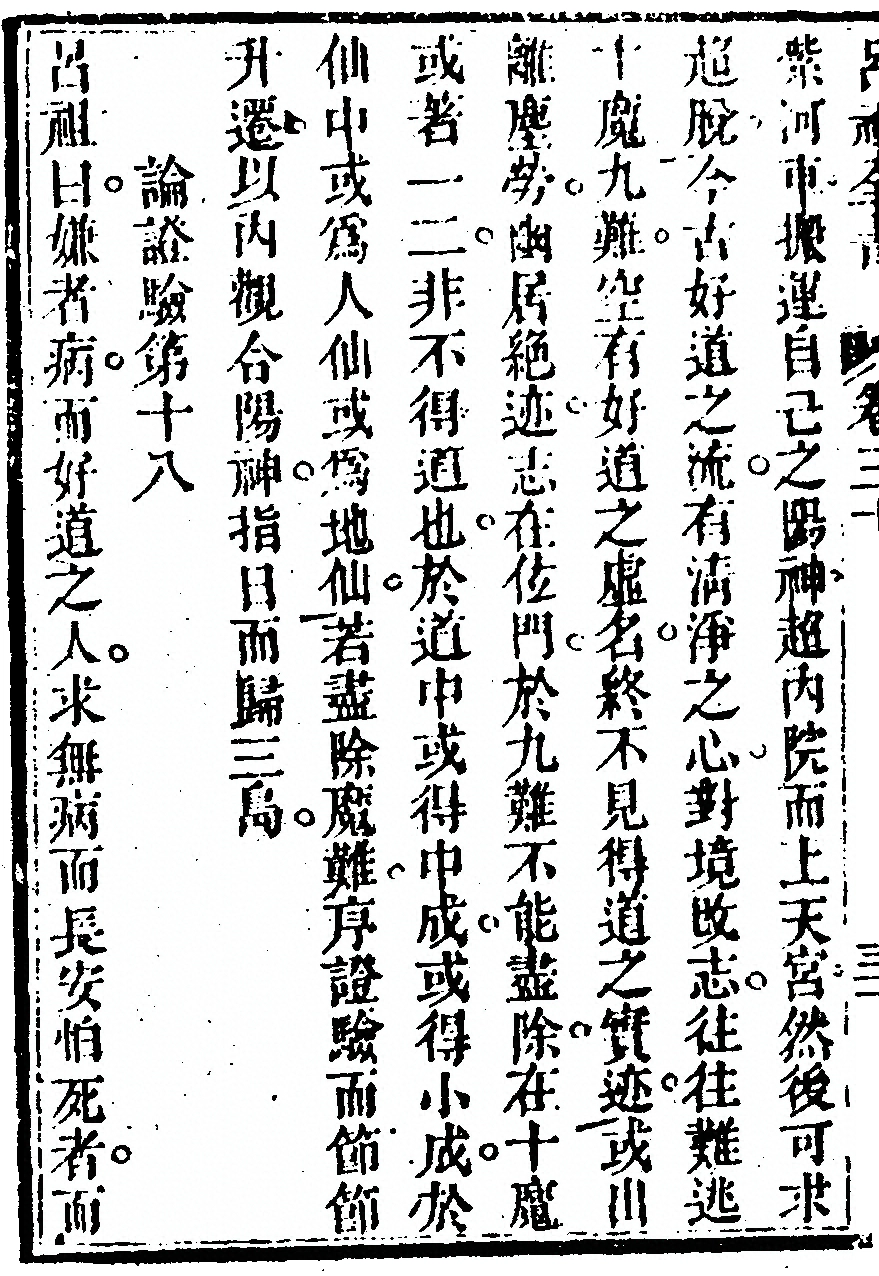 呂祖全書 卷三十 三一
紫河車搬運自己之陽神超內院而上天宮然後可求
超脫今古好道之流有淸淨之心對境改志往往難逃
十魔九難空有好道之虛名終不見得道之實迹或出
離塵勞幽居絕迹志在位門於九難不能盡除在十魔
或著一二非不得道也於道中或得中成或得小成於
仙中或爲人仙或爲地仙若盡除魔難序證驗而節節
升遷以內觀合陽神指日而歸三島
論證驗第十八
呂祖曰嫌者病而好道之人求無病而長安怕死者而